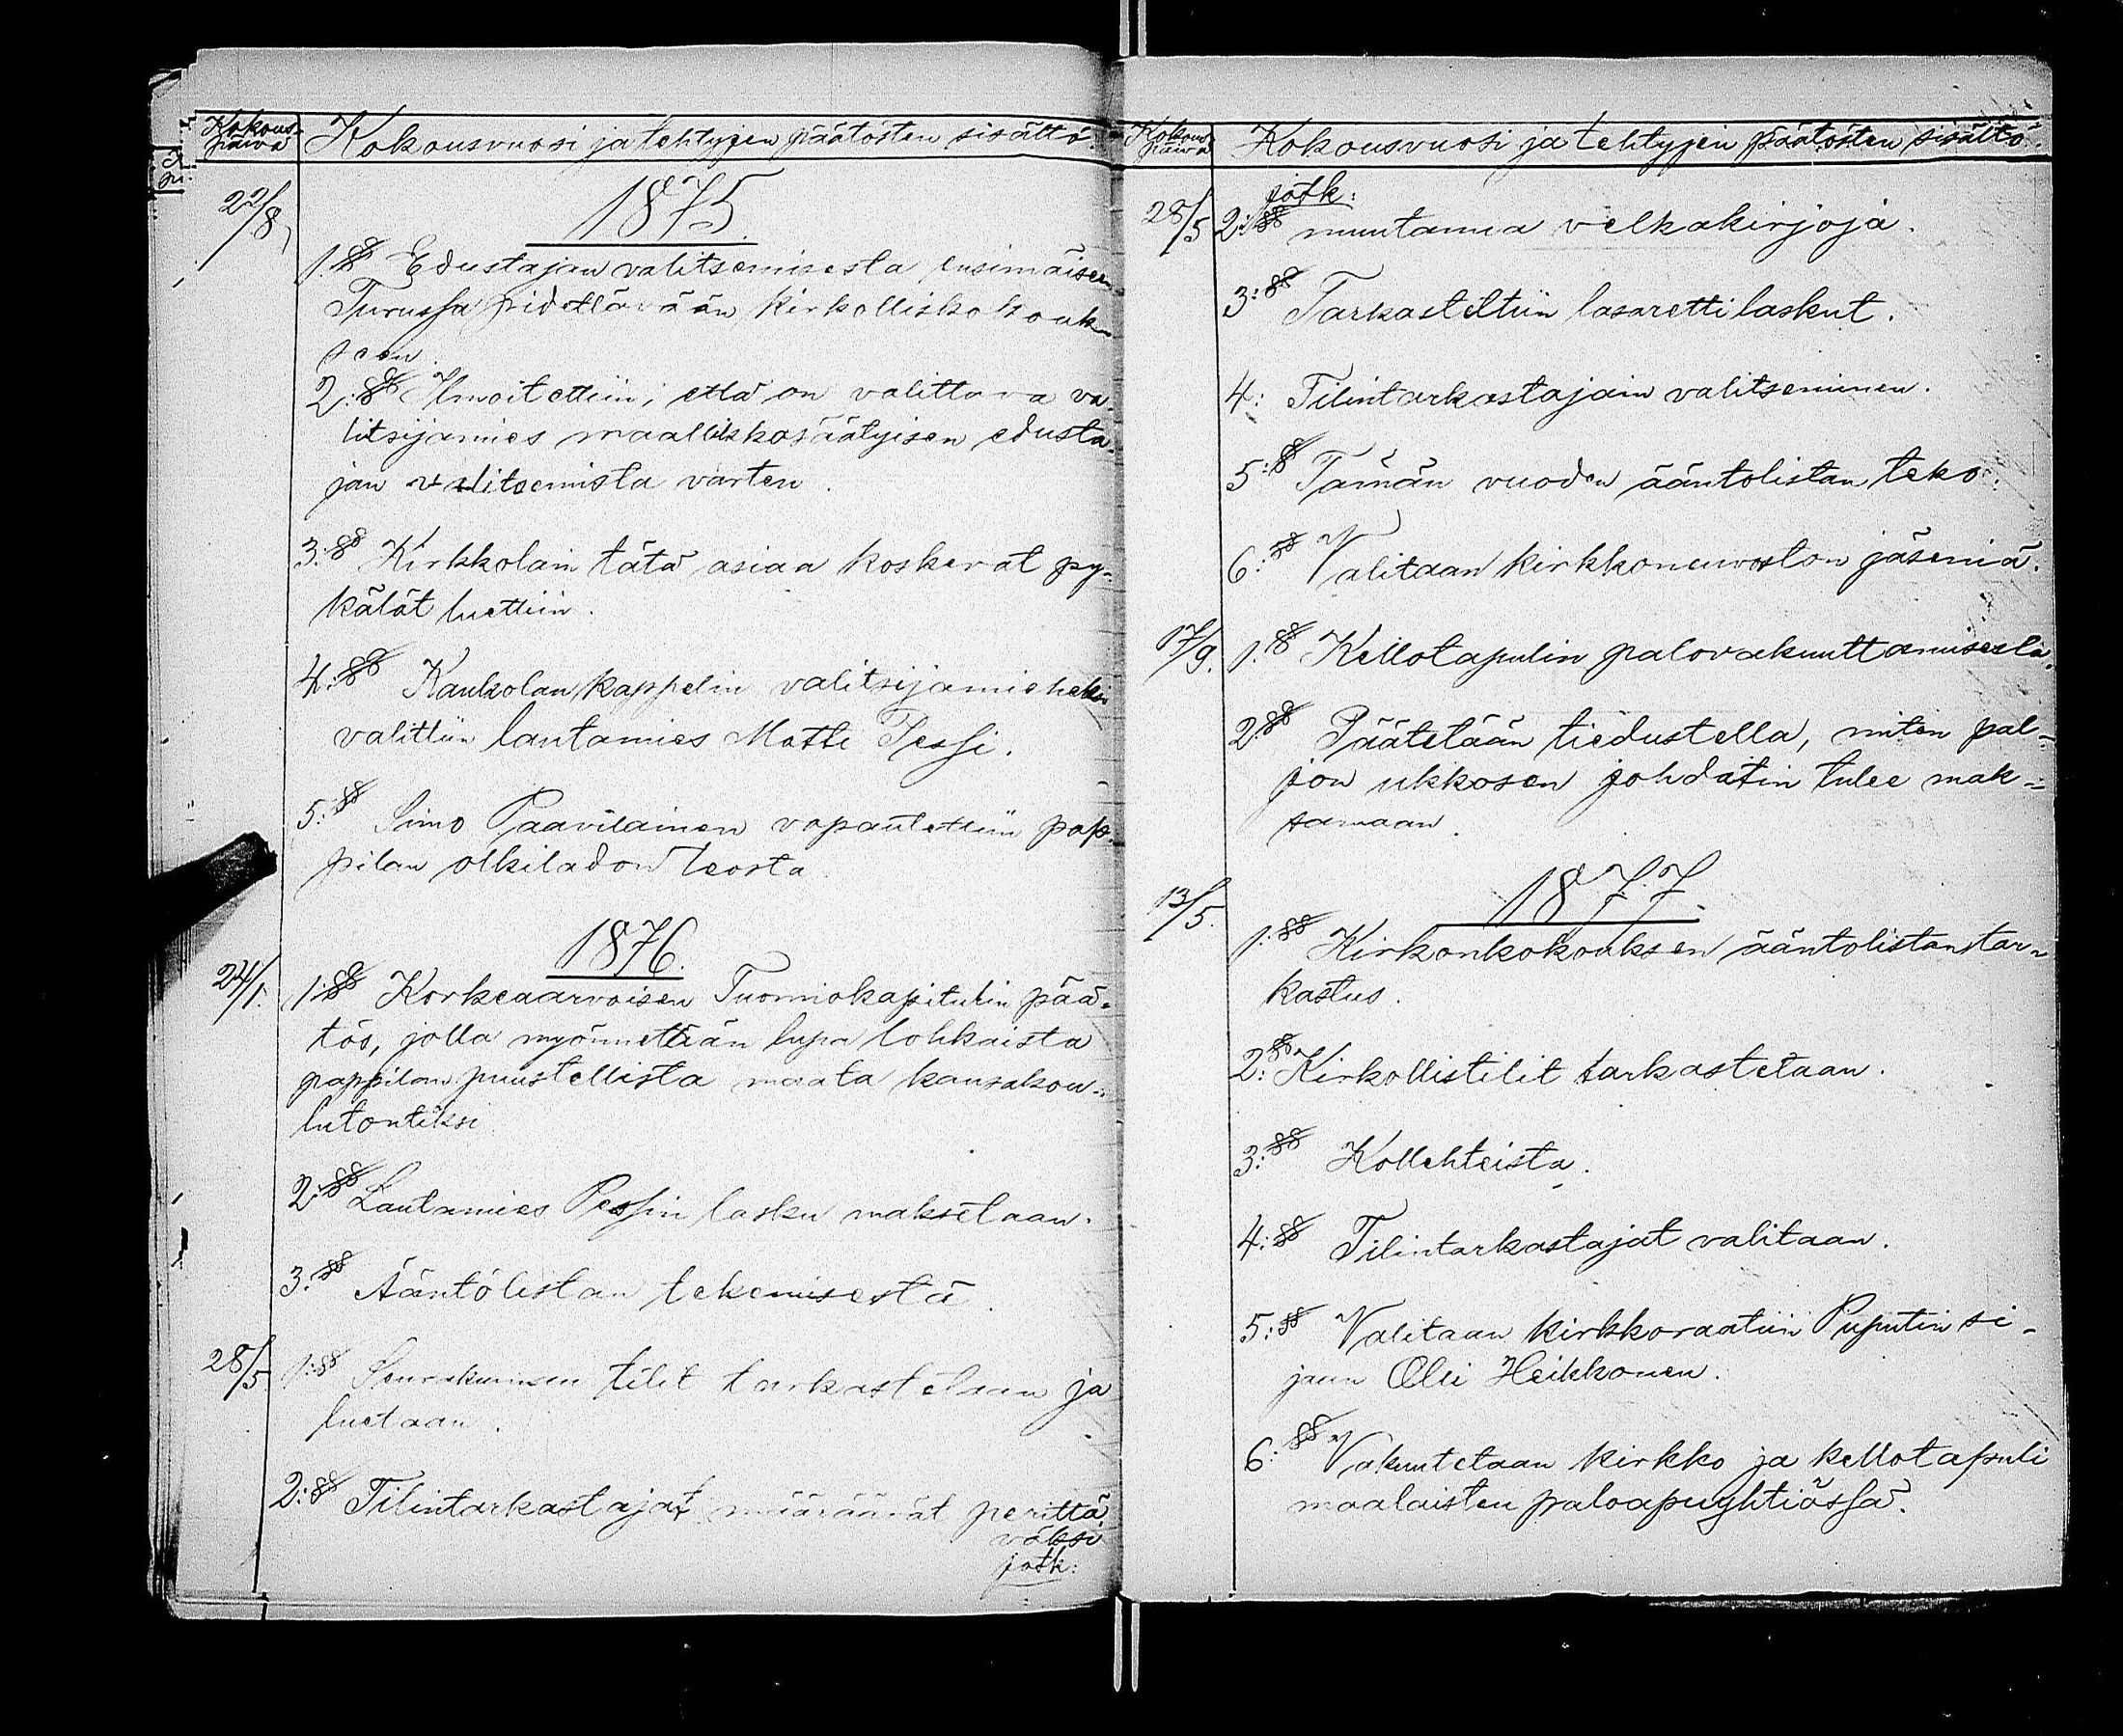 Kokous-
päivä
Kokousvuosi ja tehtyjen päätösten sisältö.
22/8
1875.
1:§§ Edustajan valitsemisesta ensimäiseen
Turussa pidettävään Kirkolliskokouk-
seen.
2:§§ Ilmoitettiin, että on valittava va-
litsijamies maallikkosäätyisen edusta-
jan valitsemista varten.
3:§§ Kirkkolain tätä asiaa koskevat py-
kälät luettiin.
4:§§ Kaukolan kappelin valitsijamieheksi
valittiin lautamies Matti Pessi.
5:§§ Simo Paavilainen vapautettiin pap-
pilan olkiladon teosta.
1876.
24/1.
1:§§ Korkeaarvoisen Tuomiokapitulin pää-
tös, jolla myönnettiän lupa lohkaista
pappilan puustellista maata kansakou-
lutontiksi
2:§§ Lautamies Pessin lasku maksetaan.
3:§§ Ääntölistan tekemisestä.
28/5
1:§§ Seurakunnan tilit tarkastetaan ja
luetaan.
2:§§ Tilintarkastajat määräävät perittä-
väksi
jatk:
Kokous-
päivä
Kokousvuosi ja tehtyjen päätösten sisältö.
jatk:
28/5 2:§§ muutamia velkakirjoja.
3:§§ Tarkasteltiin lasarettilaskut.
4: Tilintarkastajain valitseminen.
5:§ Tämän vuoden ääntolistan teko.
6:§§ Valitaan kirkkoneuvoston jäseniä.
17/9. 1:§§ Kellotapulin palovakuuttamisesta.
2§§ Päätetään tiedustella, miten pal-
jon ukkosen johdatin tulee mak-
samaan.
1877.
13/5.
1:§§ Kirkonkokouksen ääntolistan tar-
kastus.
2:§§ Kirkollistilit tarkastetaan.
3:§§ Kollehteista.
4:§§ Tilintarkastajat valitaan.
5:§§ Valitaan kirkkoraatiin Puputin si-
jaan Olli Heikkonen.
6:§§ Vakuutetaan kirkko ja kellotapuli
maalaisten paloapuyhtiössä.